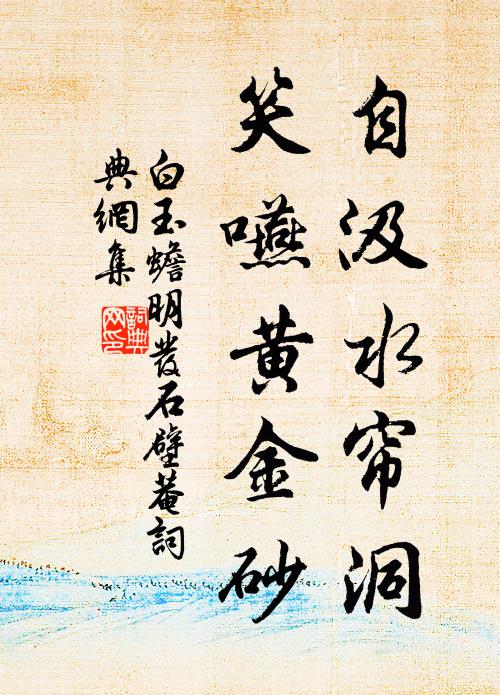 自汲水帘洞
笑嚥黄金砂
白玉蟾明发石壁菴詞
典網集
詞典网印